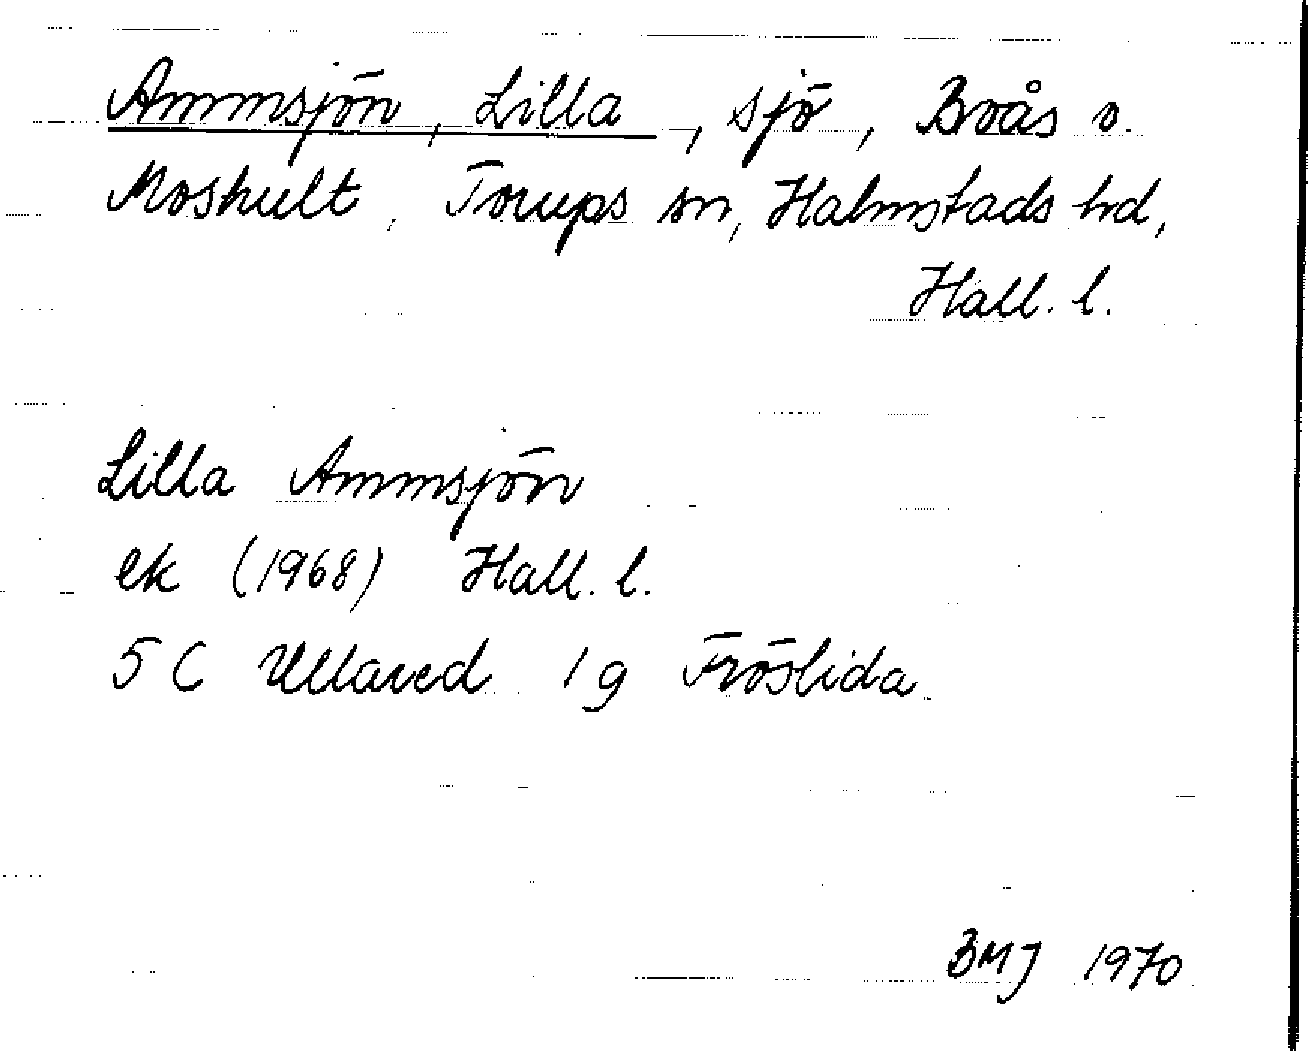 Ammsjön, Lilla, sjö, Boås o.
Moshult, Torups sn, Halmstads hd,
Hall. l.
Lilla Ammsjön
ek (1968) Hall. l.
5 C Ullared 1 g Fröslida
BMJ 1970